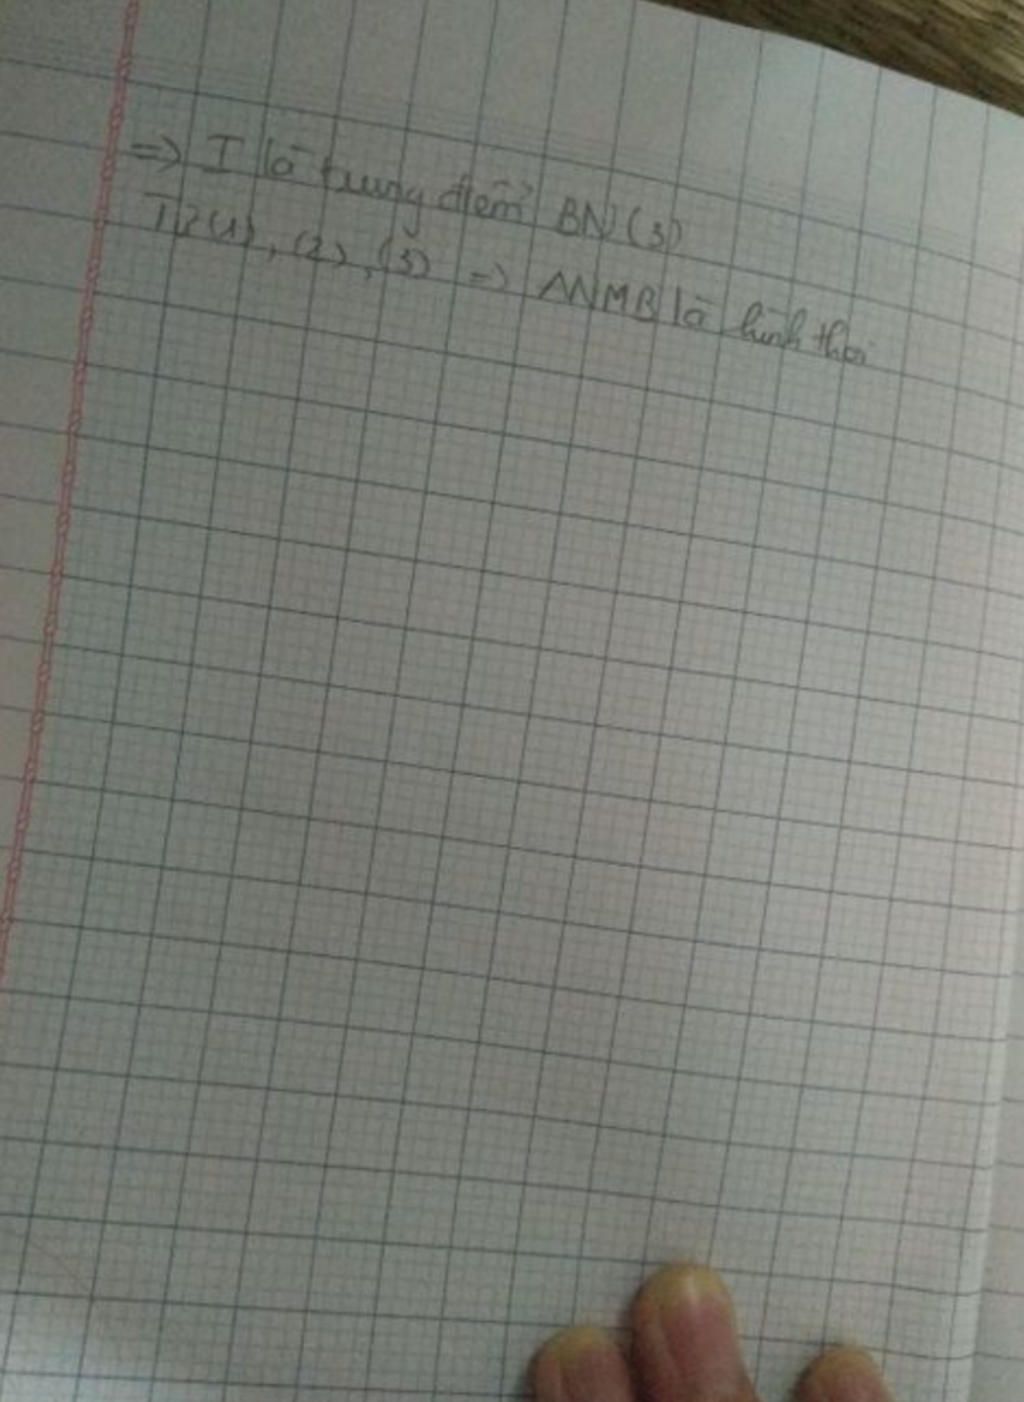 => I là trung điểm BN (3)
Từ (1), (2), (3) => ANMB là hình thoi